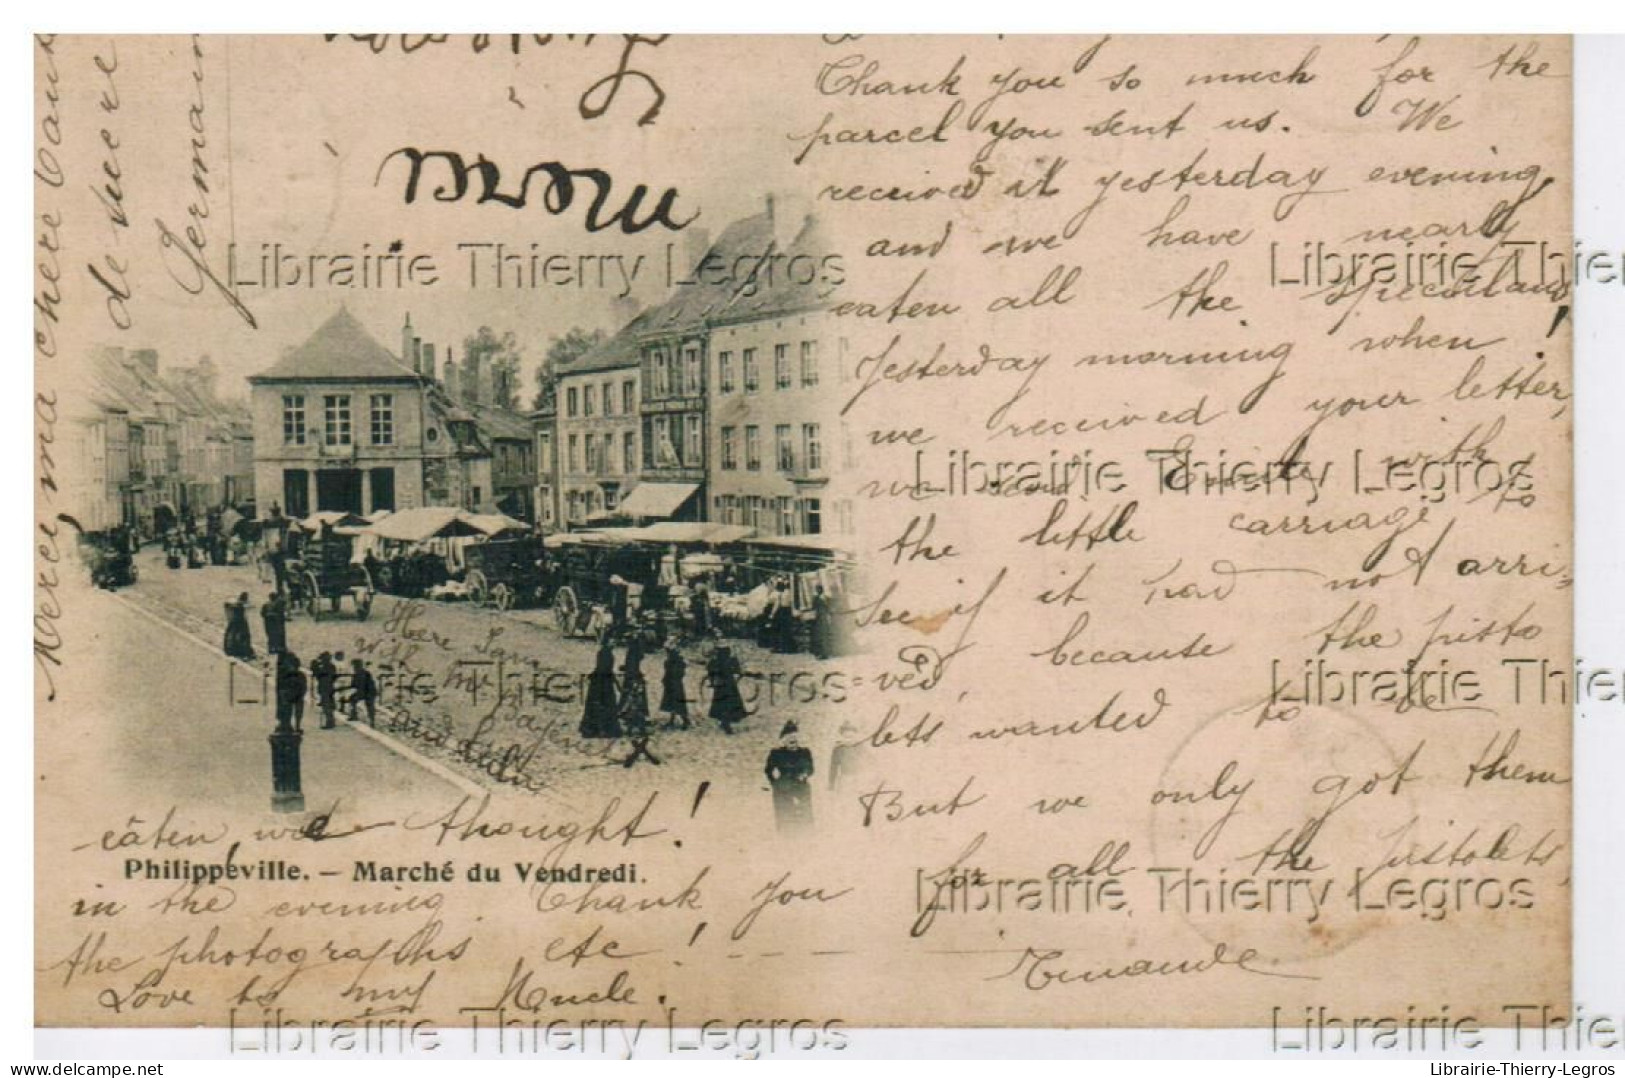 Thank you so much for the
parcel you sent us. We
received it yesterday evening,
and we have nearly
eaten all the speculaus!
Yesterday morning when
we received your letter,
we send Emile with
the little carriage to
see if it had not arri-
ved, because the pisto
lets wanted to be
But we only got them
for all the pistolets,
eaten, we thought!
in the evening. Thank you
the photographs etc! ----
Love to my Uncle.
Merci ma chère
de sucre
Germain
Here
with Mr.
and
X
Philippeville. – Marché du Vendredi.
Librairie Thierry Legros
Librairie Thier
Librairie Thierry Legros
Librairie Thierry Legros
Librairie Thier
Librairie Thierry Legros
Librairie Thierry Legros
Librairie Thier
delcampe.net
Librairie-Thierry-Legros